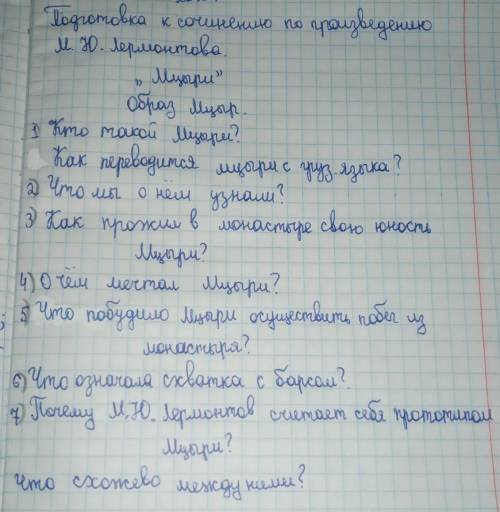 Подготовка к сочинению по произведению
М. Ю. Лермонтова.
„Мцыри"
Образ Мцыр.
1) Кто такой Мцыри?
Как переводится мцыри с груз. языка?
2) Что мы о нём узнали?
3) Как прожил в монастыре свою юность
Мцыри?
4) О чём мечтал Мцыри?
5) Что побудило Мцыри осуществить побег из
монастыря?
6) Что означала схватка с барсом?
7) Почему М. Ю. Лермонтов считает себя прототипом
Мцыри?
Что схожево между ними?